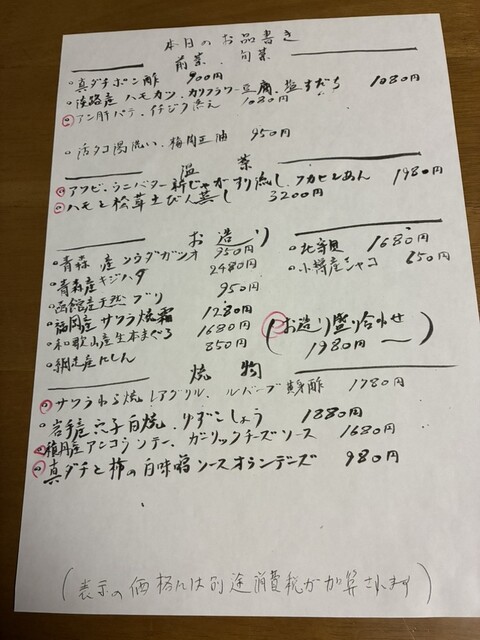 本日のお品書き
前菜、旬菜
真ダチポン酢 900円
淡路産ハモカツ、カリフラワー豆腐、塩すだち 1080円
アン肝パテ、イチジク添え 1080円
活タコ湯洗い、梅肉正油 950円
温菜
アワビ、うにバター新じゃがすり流し、フカヒレあん 1980円
ハモと松茸土びん蒸し 3200円
お造り
青森産ソウダガツオ 950円
青森産キジハタ 2480円
函館産天然ブリ 950円
福岡産サワラ焼霜 1280円
和歌山産生本まぐろ 1680円
網走産にしん 850円
北寄貝 1680円
小樽産シャコ 850円
(お造り盛り合わせ
1980円〜)
焼物
サワラわら焼レアグリル、ルバーブ黄身酢 1780円
岩手産穴子白焼、ゆずこしょう 1880円
積丹産アンコウソテー、ガーリックチーズソース 1680円
真ダチと柿の白味噌ソースオランデーズ 980円
(表示の価格には別途消費税が加算されます)